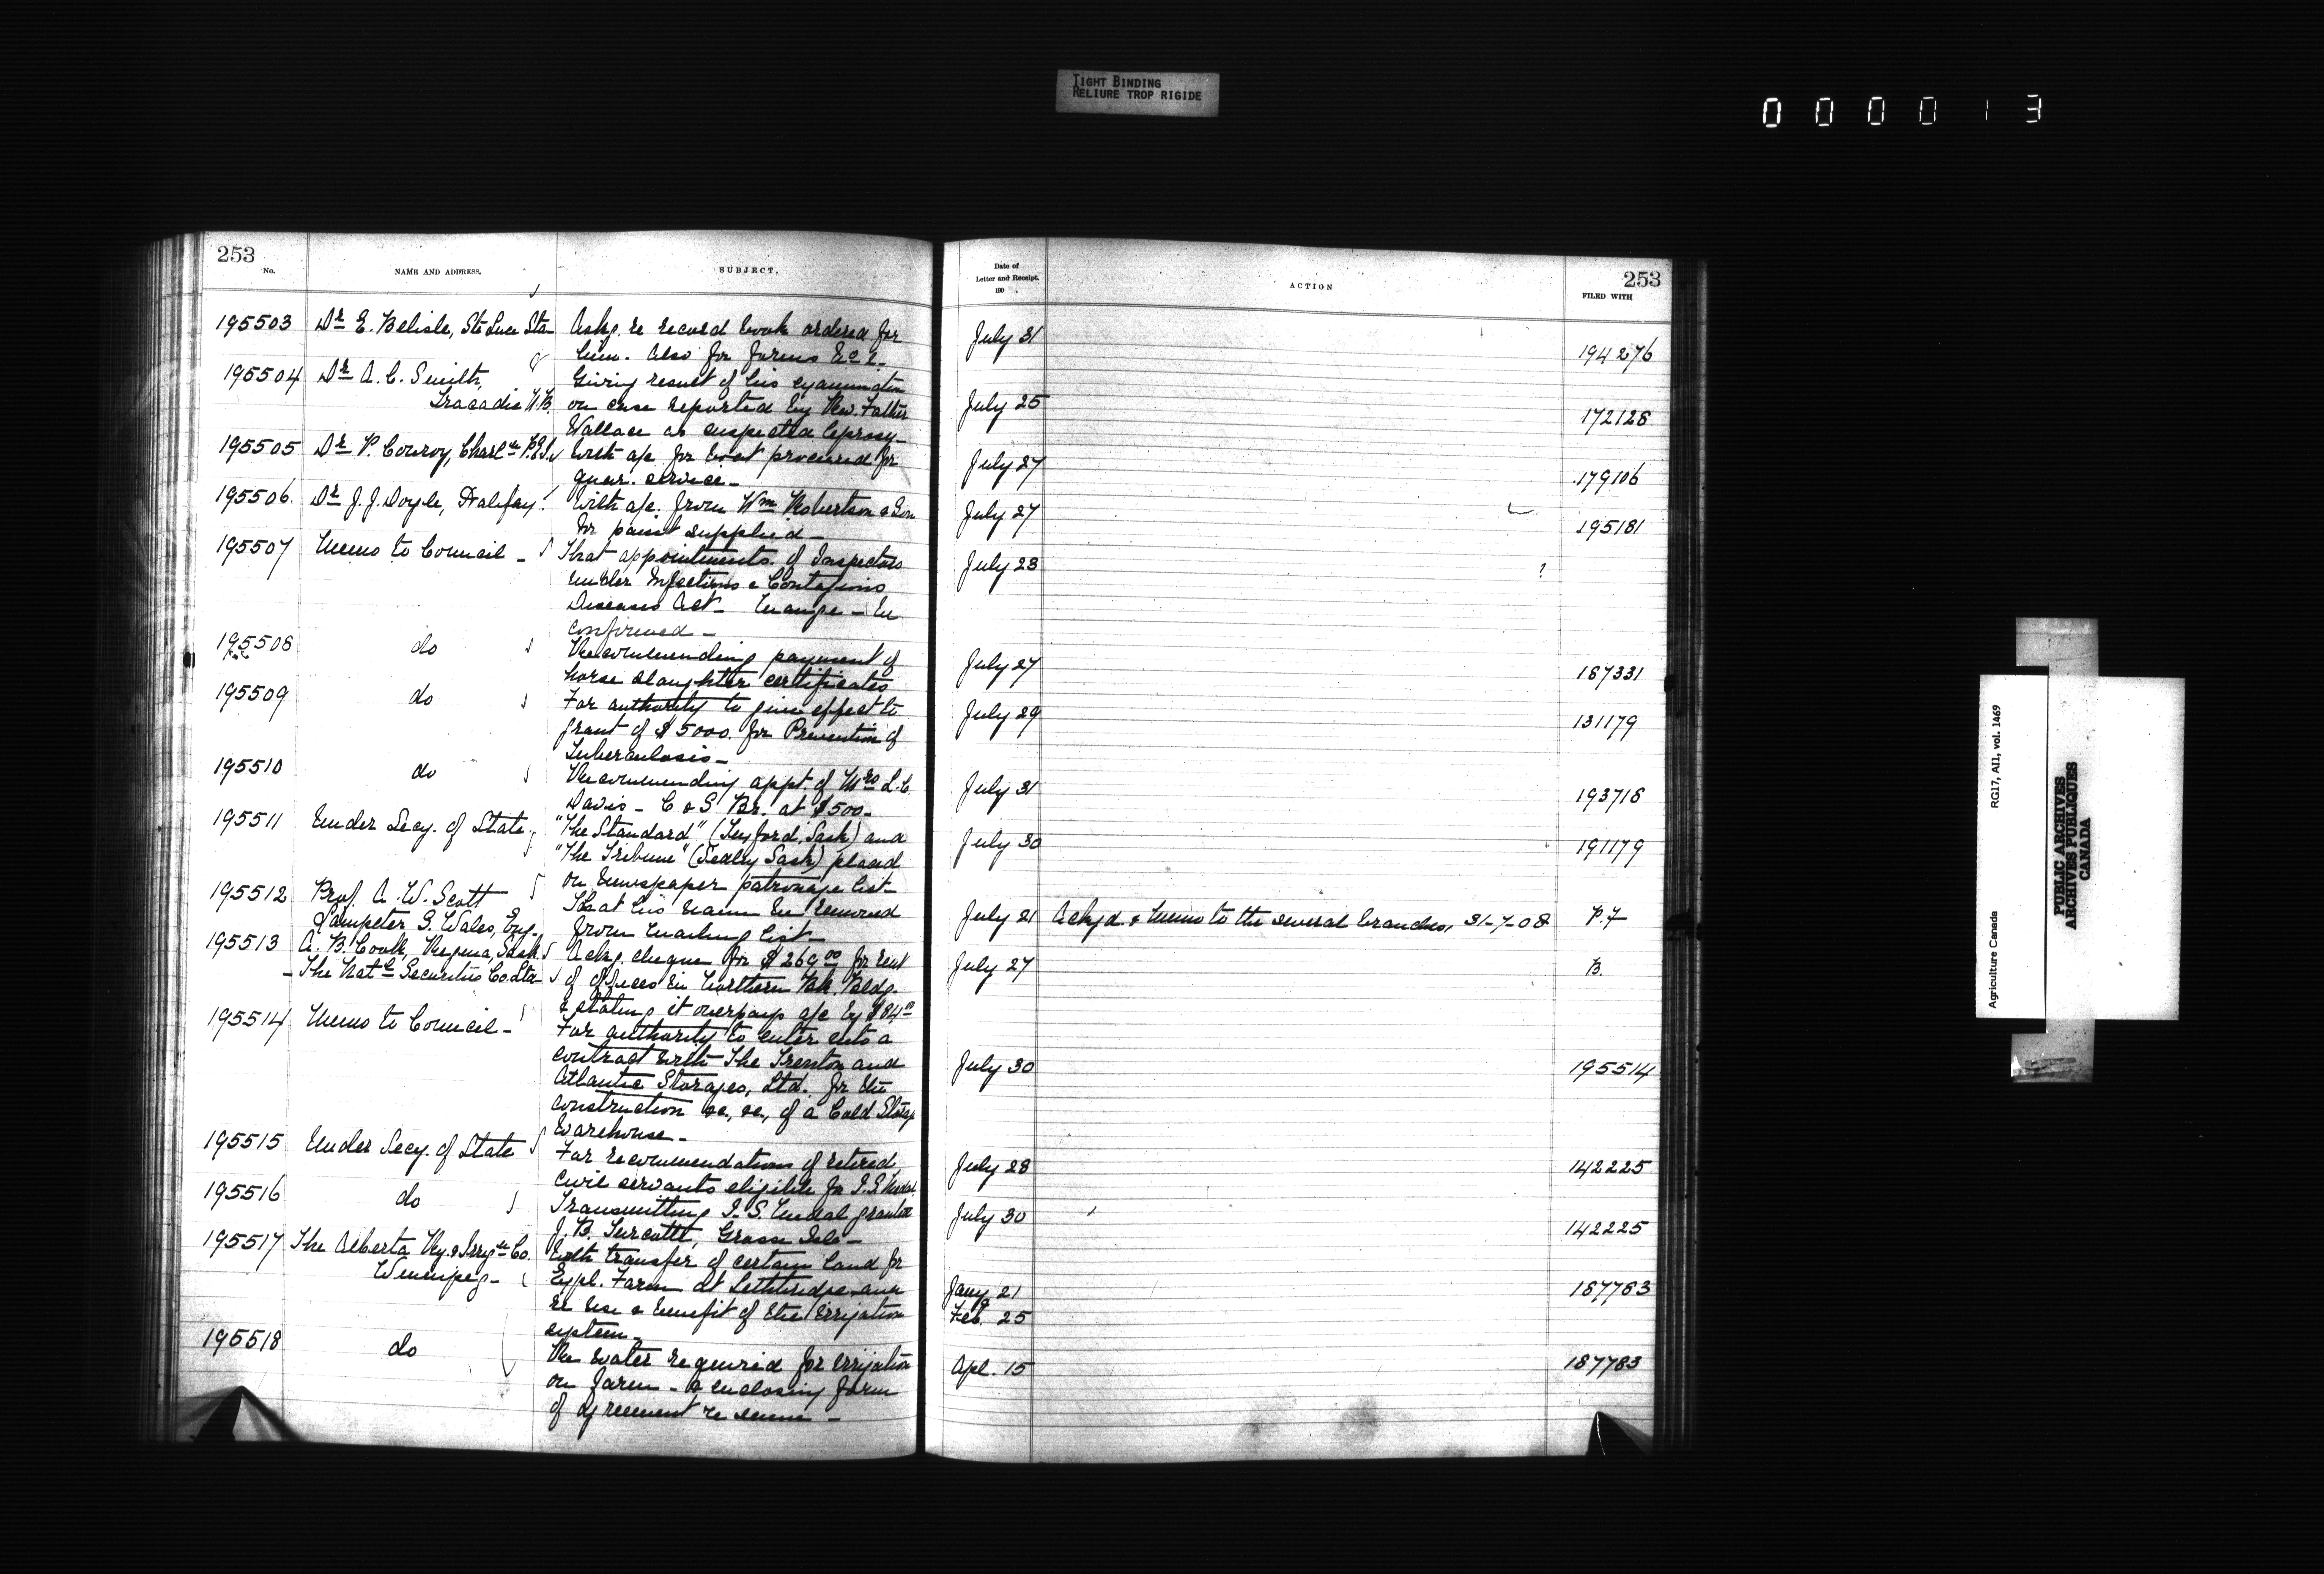 TIGHT BINDING
RELIURE TROP RIGIDE
000013
253
No. NAME AND ADDRESS. SUBJECT.
Date of
Letter and Receipt.
190 .
ACTION
253
FILED WITH
195503 Dr E. Belisle, Ste Luce Sta Ackg. re record book ordered for July 31
him. Also for forms &c &. 194276
195504 Dr A. C. Smith, Giving result of his examination
Tracadie N.B. on case reported by Rev. Father July 25 172128
Wallace as suspected leprosy -
195505 Dr P. Conroy, Charl'tn P.E.I. With a/c for boat procured for July 27
quar. service - 179106
195506. Dr J. J. Doyle, Halifax With a/c. from Wm Robertson & Son July 27
for paint supplied - 195181
195507 Memo to Council - That appointments of Inspectors July 28 ?
under Infectious & Contagious
Diseases Act - Mange - be
confirmed -
195508 do Recommending payment of July 27
horse slaughter certificates 187331
195509 do For authority to give effect to July 29
grant of $5000. for Prevention of 131179
Tuberculosis -
195510 do Recommending appt. of Mrs L. C. July 31
Davis - C & S Br. at $500. 193718
195511 Under Secy. of State. "The Standard" (Sask) and July 30
"The Tribune" (Sedley Sask) placed 191179
on newspaper patronage list -
195512 Prof. A. W. Scott That his name be removed July 21 Ackgd. & Memo to the several branches, 31-7-08 P.7
Lampeter S. Wales, Eng. from mailing list -
195513 A. B. Cook, Regina, Sask. Ackg. cheque for $269.00 for rent July 27 B.
- The Natl Securities Co. Ltd of offices in Northern Bk. Bldg.
& stating it overpays a/c by $84.00
195514 Memo to Council - For authority to enter into a
contract with The Trenton and July 30 195514
Atlantic Storages, Ltd. for the
construction &c, &c, of a Cold Storage
Warehouse -
195515 Under Secy. of State For recommendations of retired July 28 142225
civil servants eligible for I.S. Medal.
195516 do Transmitting I.S. Medal granted July 30
J. B. Turcotte, Grosse Isle - 142225
195517 The Alberta Ry. & Irrig'n Co. With transfer of certain land for
Winnipeg - Expl. Farm at Lethbridge and Jany 21 187783
re use & benefit of the irrigation Feb. 25
system -
195518 do Re water required for irrigation Apl. 15 187783
on farm - & enclosing form
of agreement re same -
Agriculture Canada RG17, AII, vol. 1469
PUBLIC ARCHIVES
ARCHIVES PUBLIQUES
CANADA